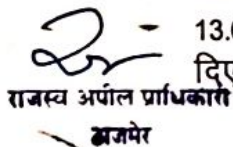 13.
दिए
राजस्व अपील प्राधिकारी
अजमेर